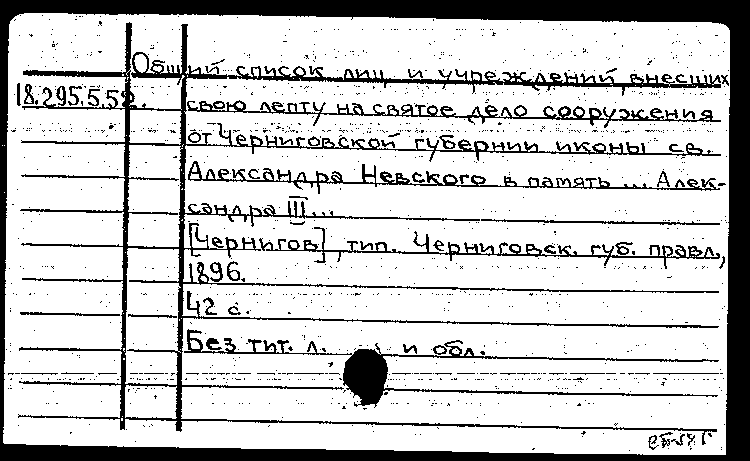 Общий список лиц и учреждений, внесших
18.295.5.52. свою лепту на святое дело сооружения
от Черниговской губернии иконы св.
Александра Невского в память ... Алек-
сандра III...
[Чернигов], тип. Черниговск. губ. правл.,
1896.
42 с.
Без тит. л. и обл.